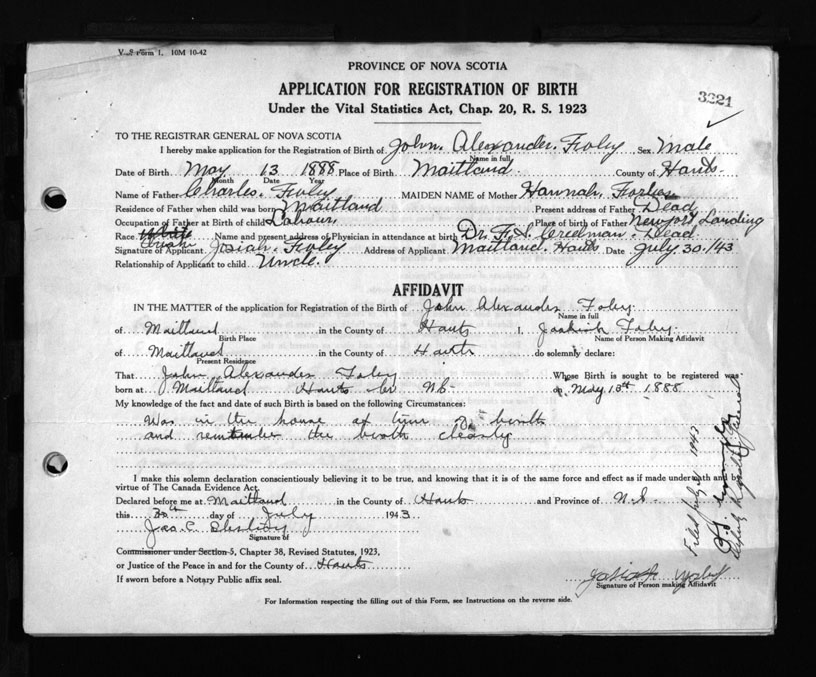 V. S. Form 1. 10M 10-42
PROVINCE OF NOVA SCOTIA
APPLICATION FOR REGISTRATION OF BIRTH
3221
Under the Vital Statistics Act, Chap. 20, R. S. 1923
TO THE REGISTRAR GENERAL OF NOVA SCOTIA
I hereby make application for the Registration of Birth of John Alexander Foley Sex Male
Name in full
Date of Birth May 13 1888 Place of Birth Maitland County of Hants
Month Date Year
Name of Father Charles Foley MAIDEN NAME of Mother Hannah Forbes
Residence of Father when child was born Maitland Present address of Father Dead
Occupation of Father at Birth of child Labour Place of birth of Father Newport Landing
Race Name and present address of Physician in attendance at birth Dr. F. S. Creelman - Dead
Irish
Signature of Applicant Josiah Foley Address of Applicant Maitland, Hants Date July 30/43
Relationship of Applicant to child Uncle.
AFFIDAVIT
IN THE MATTER of the application for Registration of the Birth of John Alexander Foley
Name in full
of Maitland in the County of Hants I, Foley
Birth Place Name of Person Making Affidavit
of Maitland in the County of Hants do solemnly declare:
Present Residence
That John Alexander Foley Whose Birth is sought to be registered was
born at Maitland Hants Co NS on May 13th 1888
My knowledge of the fact and date of such Birth is based on the following Circumstances:
Was in the house at time of birth
and remember the birth clearly
I make this solemn declaration conscientiously believing it to be true, and knowing that it is of the same force and effect as if made under oath and by
virtue of The Canada Evidence Act.
Declared before me at Maitland in the County of Hants and Province of N.S.
this 30th day of July 1943
Jas. C.
Signature of
Commissioner under Section 5, Chapter 38, Revised Statutes, 1923,
or Justice of the Peace in and for the County of Hants
If sworn before a Notary Public affix seal.
Josiah Foley
Signature of Person making Affidavit
For Information respecting the filling out of this Form, see Instructions on the reverse side.
Filed July 31 1943
Deputy Registrar General